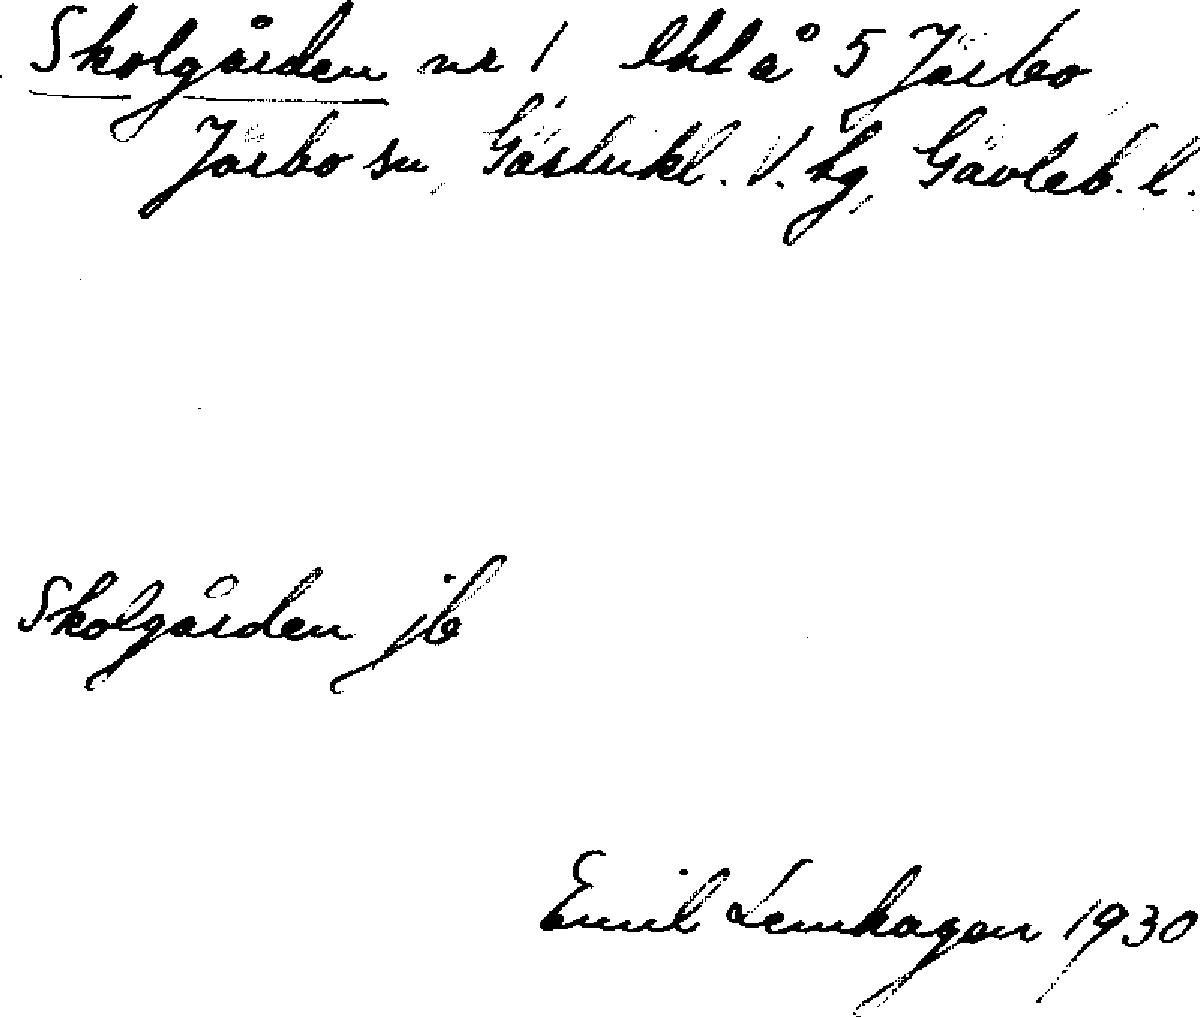 Skolgården nr 1 lht å 5 Järbo
Järbo sn, Gästrikl. V. hg, Gävleb. l.
Skolgården jb
Emil Lenhagen 1930